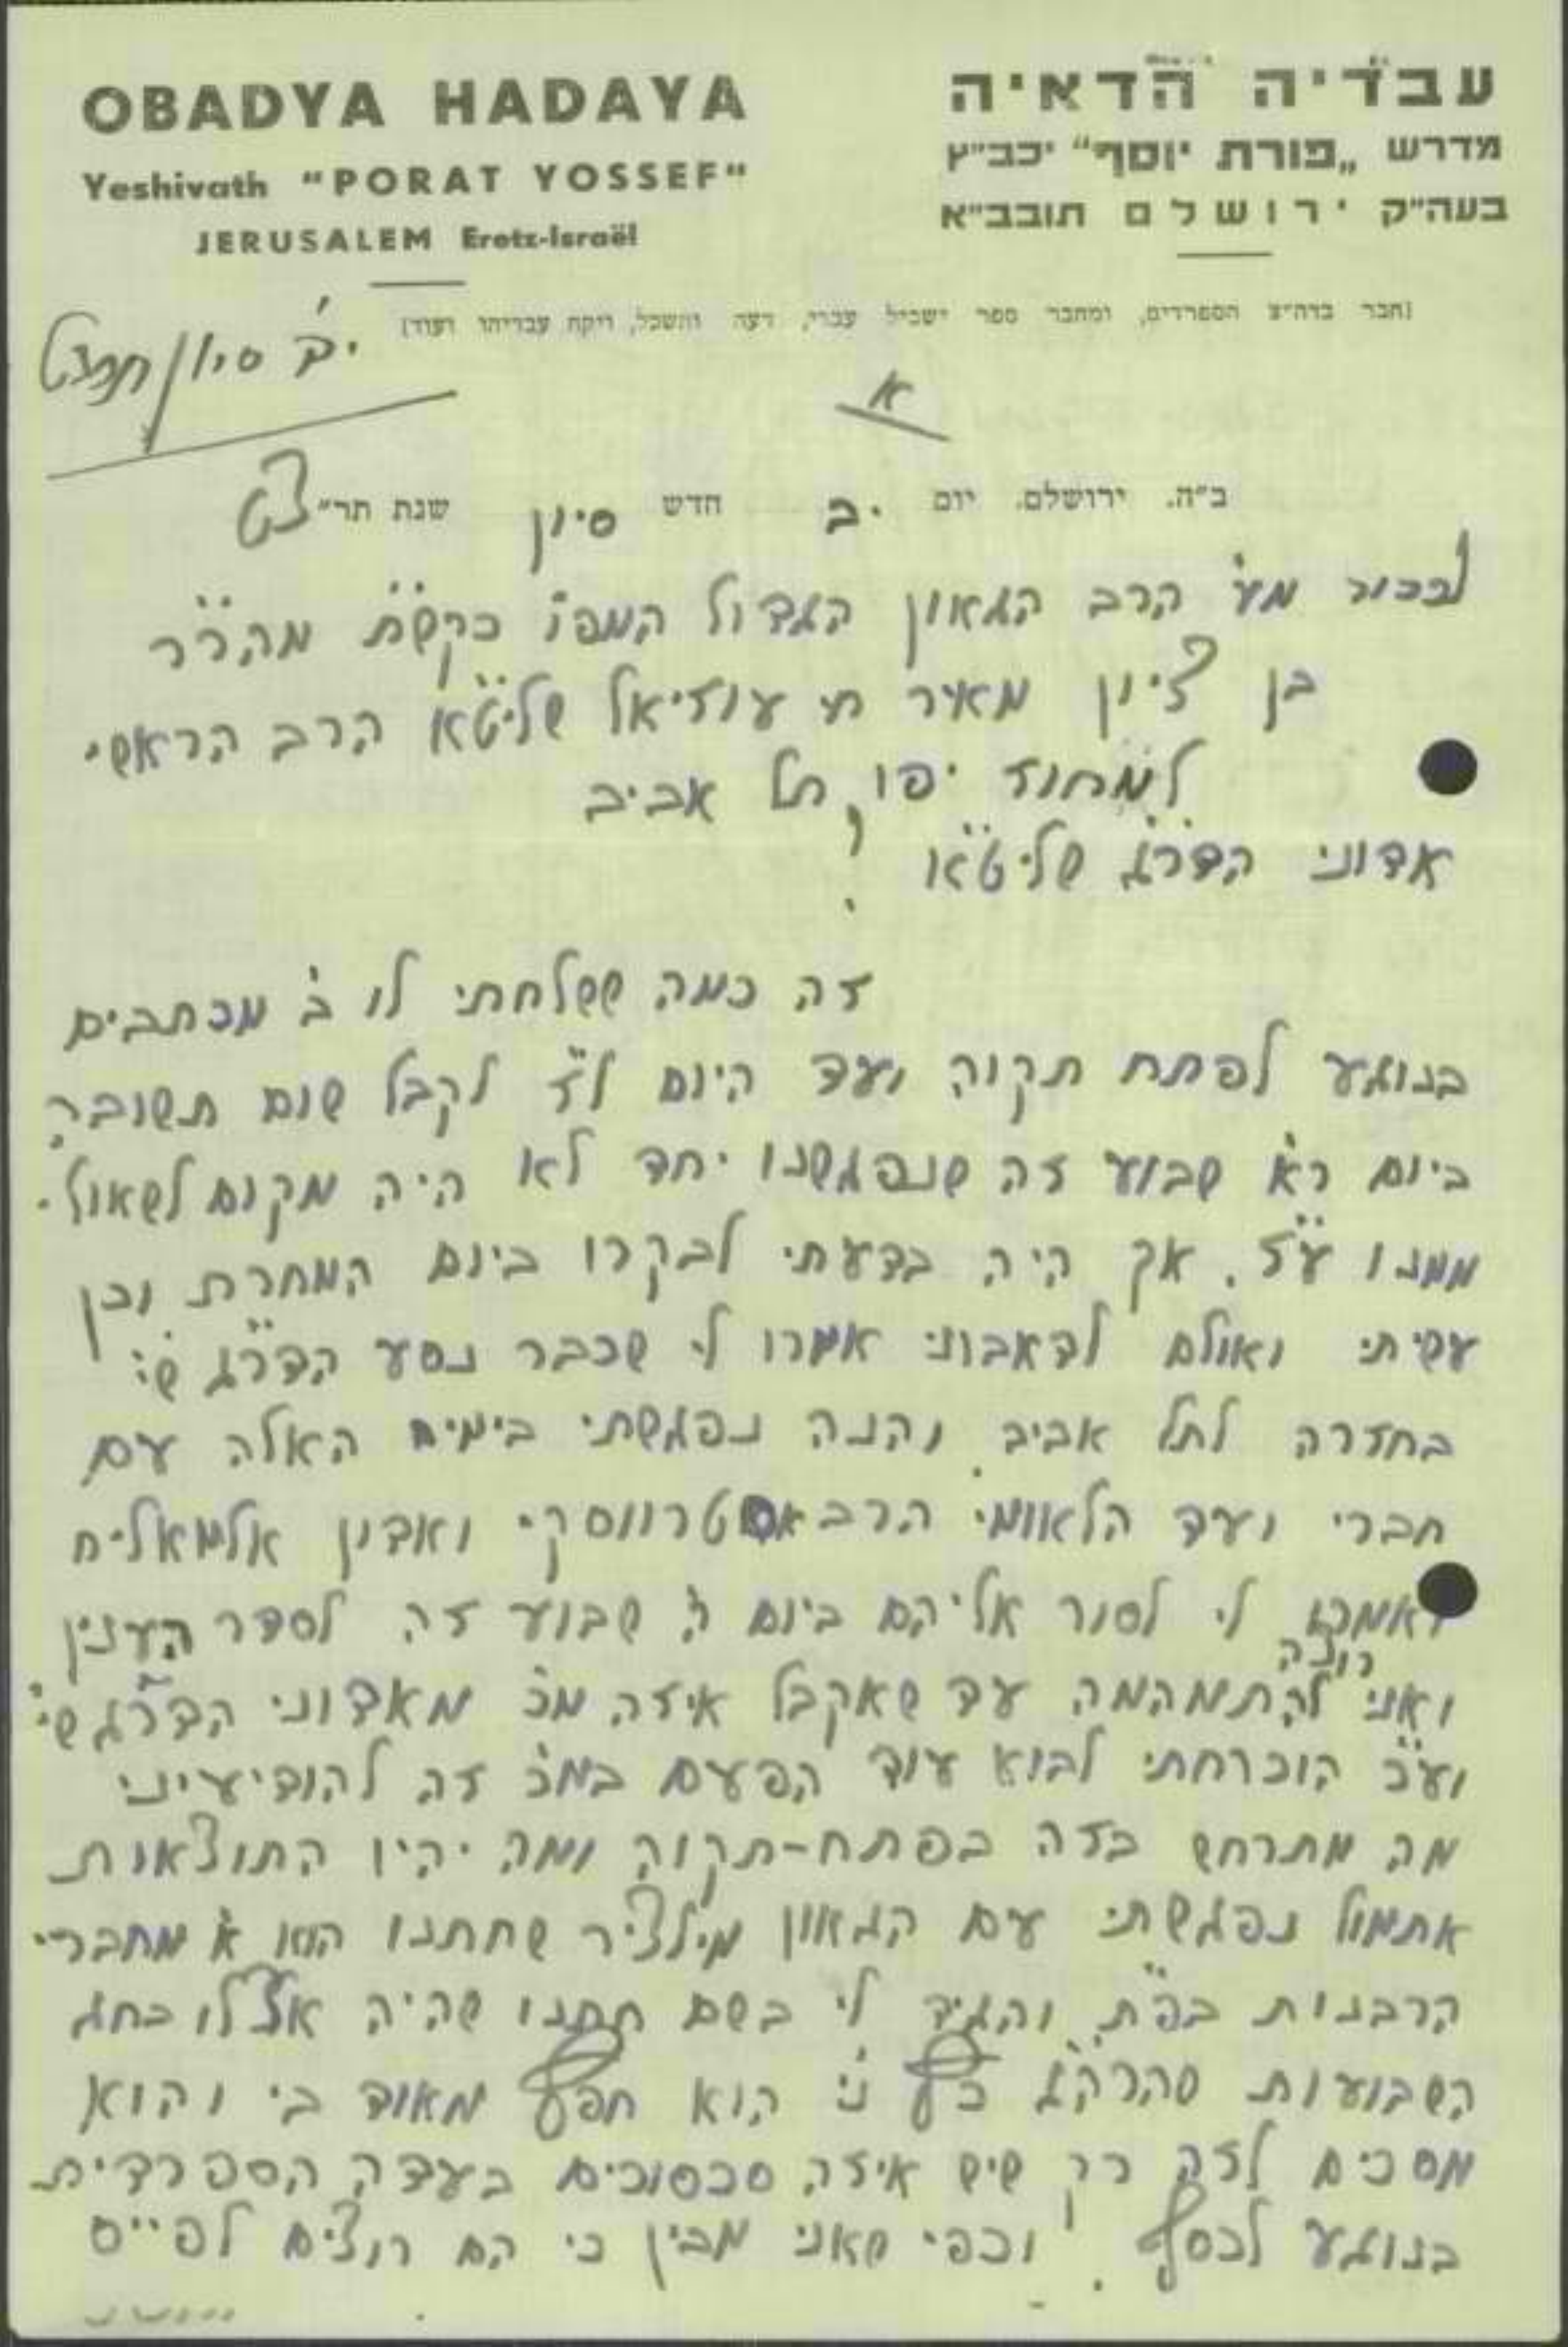 OBADYA HADAYA
Yeshivath "PORAT YOSSEF"
JERUSALEM Eretz-Israël
עבדיה הדאיה
מדרש „פורת יוסף" יכב"ץ
בעה"ק ירושלם תובב"א
[חבר בדה"צ הספרדים, ומחבר ספר ישכיל עבדי, דעה והשכל, ויקח עבדיהו ועוד]
סיון תרצט
א
ב"ה. ירושלם. יום יב חדש סיון שנת תר"צט
לכבוד מע' הרב הגאון הגדול המפו' כקש"ת מהר"ר
בן ציון מאיר חי עוזיאל שליט"א הרב הראשי
למחוז יפו, תל אביב
אדוני הדר"ג שליט"א !
זה כמה ששלחתי לו ב' מכתבים
בנוגע לפתח תקוה ועד היום ל"ז לקבל שום תשובה
ביום א' שבוע זה שנפגשנו יחד לא היה מקום לשאול
ממנו ע"ז. אך היה בדעתי לבקרו ביום המחרת וכן
עשיתי ואולם לדאבוני אמרו לי שכבר נסע הדר"ג שי'
בחזרה לתל אביב. והנה נפגשתי בימים האלה עם
חברי ועד הלאומי הרב אסטרווסקי ואדון אלמאליח
ואמרו לי לסור אליהם ביום ה' שבוע זה לסדר הענין
ואני רוצה להתמהמה עד שאקבל איזה מכ' מאדוני הדר"ג שי'
וע"כ הוכרחתי לבוא עוד הפעם במכ' זה להודיעיני
מה מתרחש בזה בפתח-תקוה ומה יהיו התוצאות
אתמול נפגשתי עם הגאון מילציר שחתנו הוא א' מחברי
הרבנות בפ"ת, והגיד לי בשם חתנו שהיה אצלו בחג
השבועות שהרה"ג כץ ני' הוא חפץ מאוד בי והוא
מסכים לזה רק שיש איזה סכסוכים בעדה הספרדית
בנוגע לכסף. וכפי שאני מבין כי הם רוצים לפייס